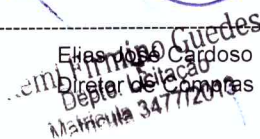 Elias José Cardoso
Diretor de Compras
Firmino Guedes
Deptº Licitação
Matrícula 34777/2013